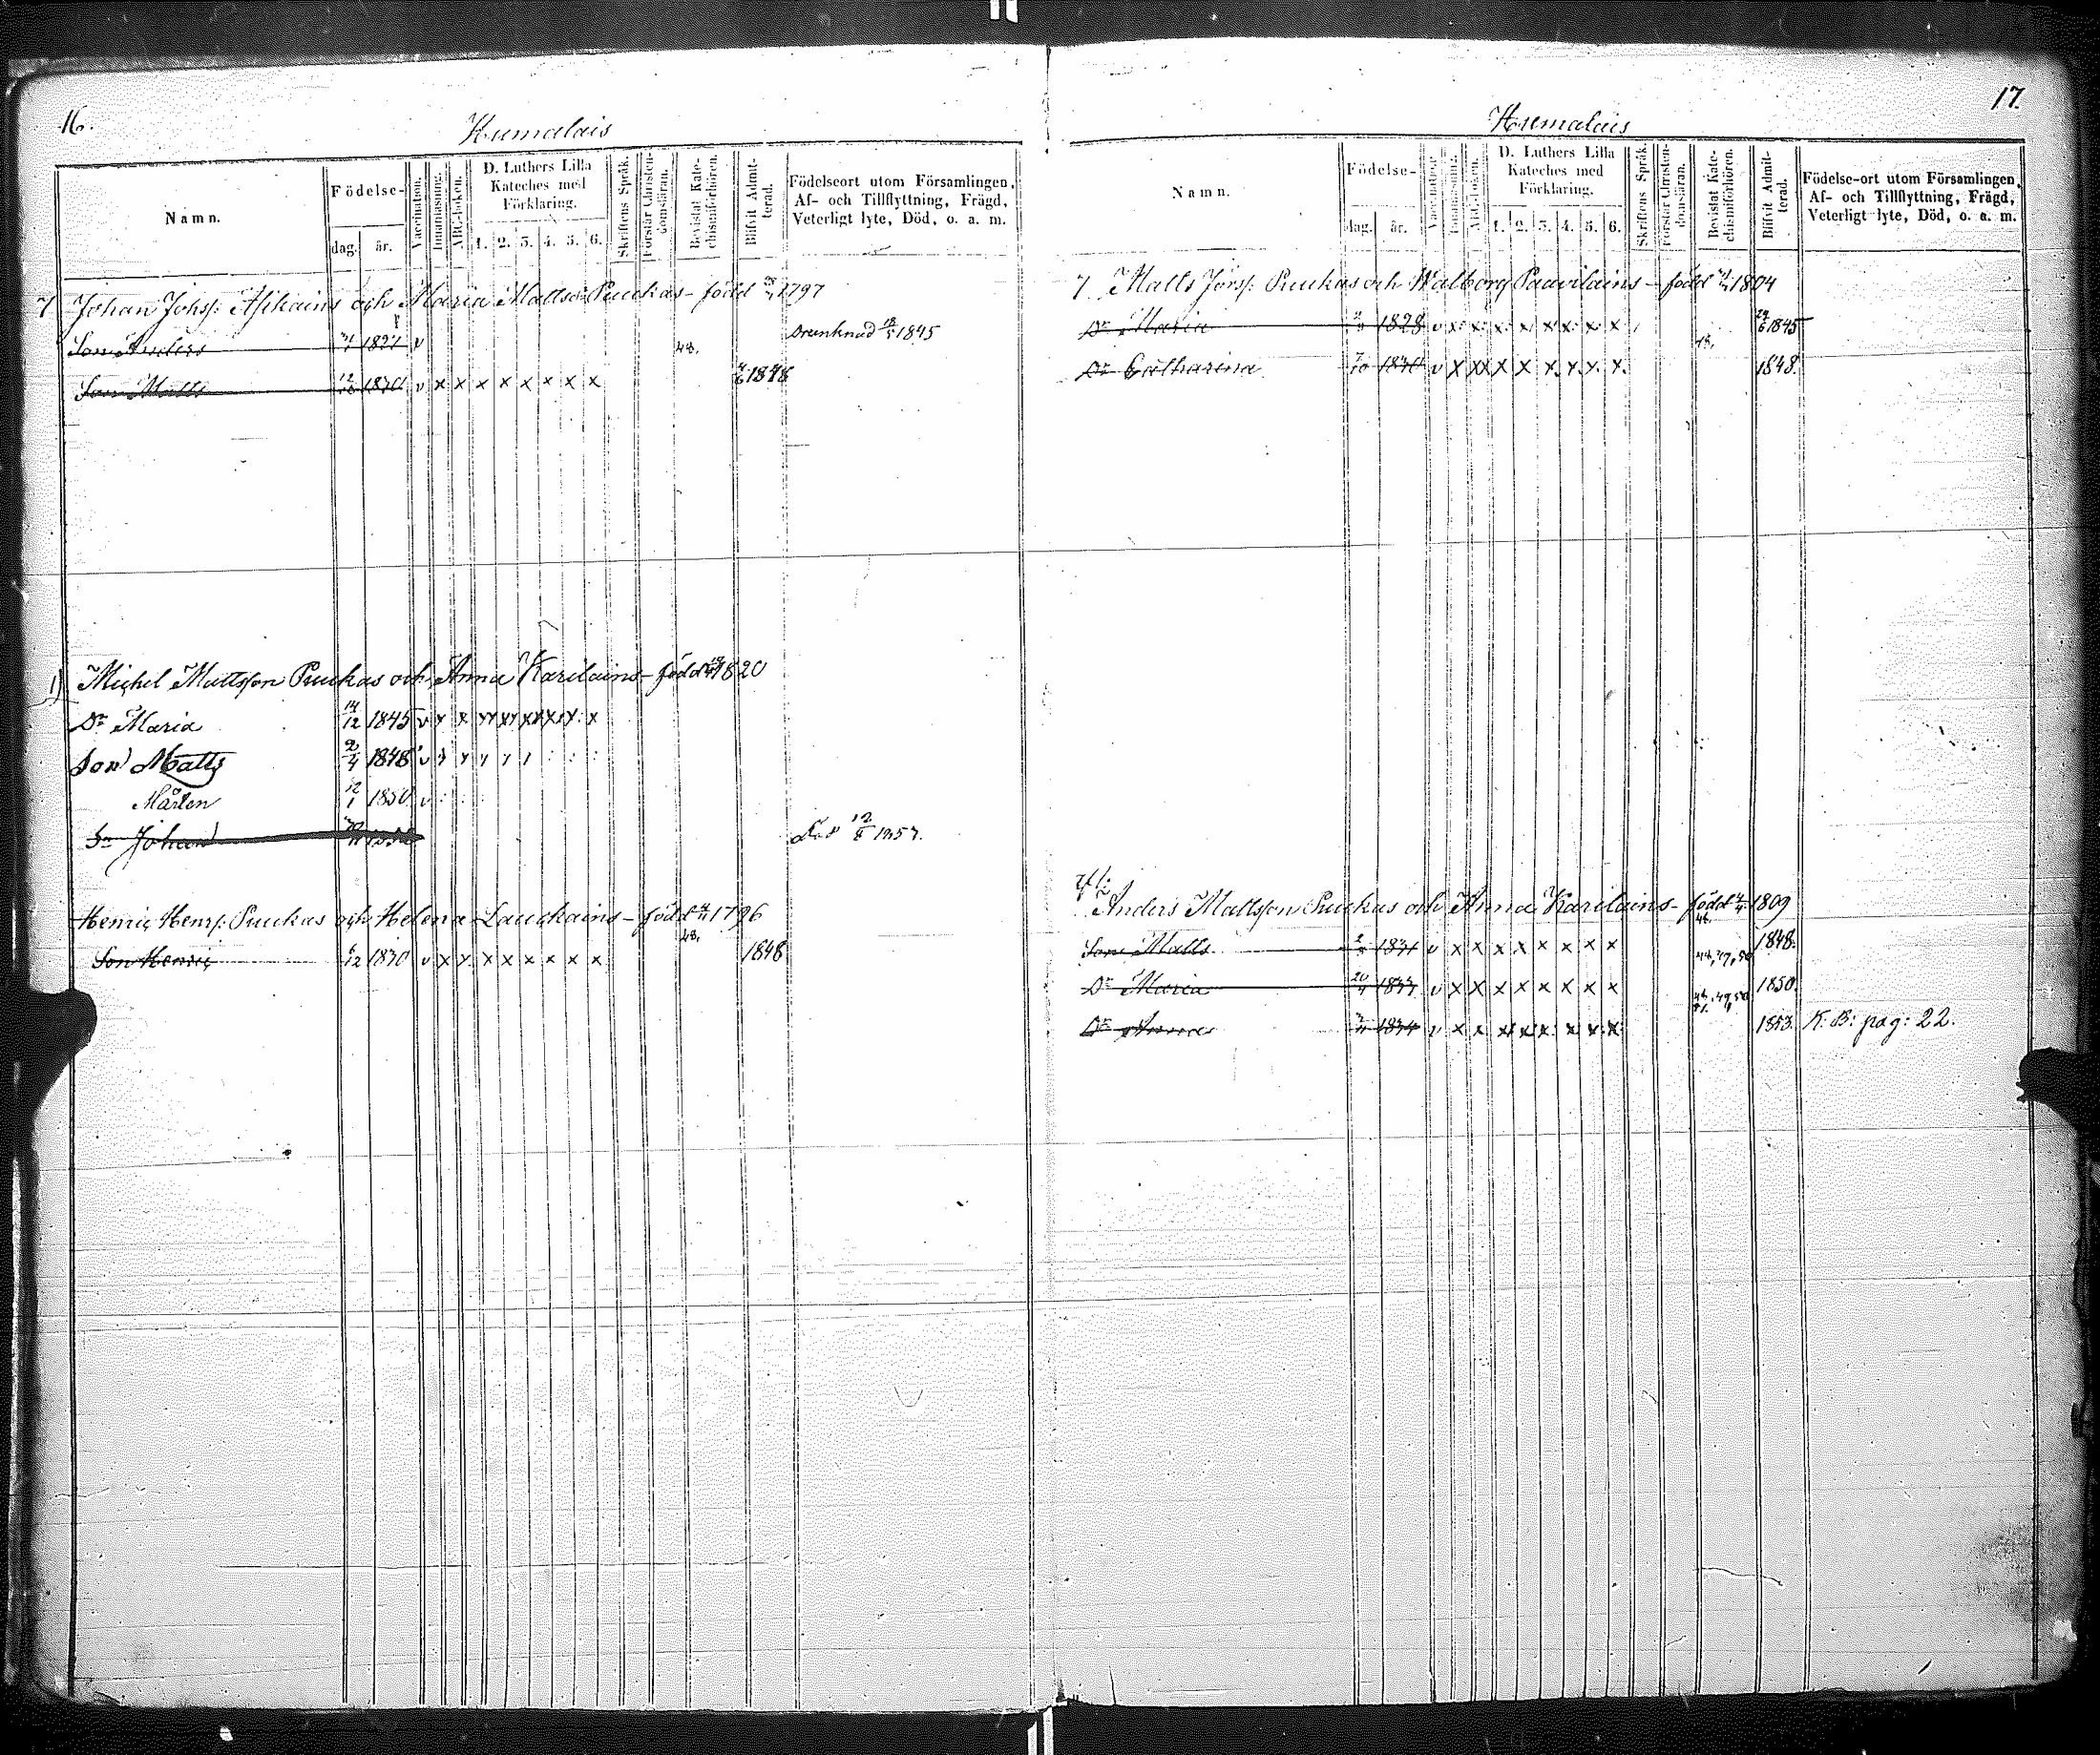 16.
Humalais
Namn.
Födelse-
dag. år.
Vaccination.
Innanläsning.
ABC-boken.
D. Luthers Lilla Kateches med Förklaring.
1. 2. 3. 4. 5. 6.
Skriftens Språk.
Förstår Christendomsläran.
Bevistat Katechismiförhören.
Blifvit Admitterad.
Födelseort utom Församlingen, Af- och Tillflyttning, Frägd, Veterligt lyte, Död, o. a. m.
7 Johan Johsf: Asikains och Maria Mattsdr Puukas - född 1797
Son Anders 1827 v Drunknad 1845
Son Matts 1830 v x x x x x x x x 48. 1848
1) Michel Mattsson Puukas och Anna Karilains - född 1820
Dr Maria 14/12 1845 v
Son Matts 2/4 1848 v
Mårten 12/1 1850 v
Sn Johan Död 12/8 1857.
Henric Henrs: Puukas och Helena Lauckains - född 1796
Son Henric 6/12 1830 v x x x x x x x x 48. 1848
17.
Humalais
Namn.
Födelse-
dag. år.
Vaccination.
Innanläsning.
ABC-boken.
D. Luthers Lilla Kateches med Förklaring.
1. 2. 3. 4. 5. 6.
Skriftens Språk.
Förstår Christendomsläran.
Bevistat Katechismiförhören.
Blifvit Admitterad.
Födelse-ort utom Församlingen, Af- och Tillflyttning, Frägd, Veterligt lyte, Död, o. a. m.
7. Matts Jörsf: Puukas och Walborg Paavilains - född 1804
Dr Maria 1828 v x x x x x x x x 1845
Dr Catharina 1830 v x x x x x x x x 48. 1848.
Anders Mattsson Puukas och Anna Karilains - född 1809
Son Matts 1831 v x x x x x x x x 46. 1848.
Dr Maria 20/4 1833 v x x x x x x x x 1850.
Dr Anna 1834 v x x x x x x x x 1853. K: B: pag: 22.